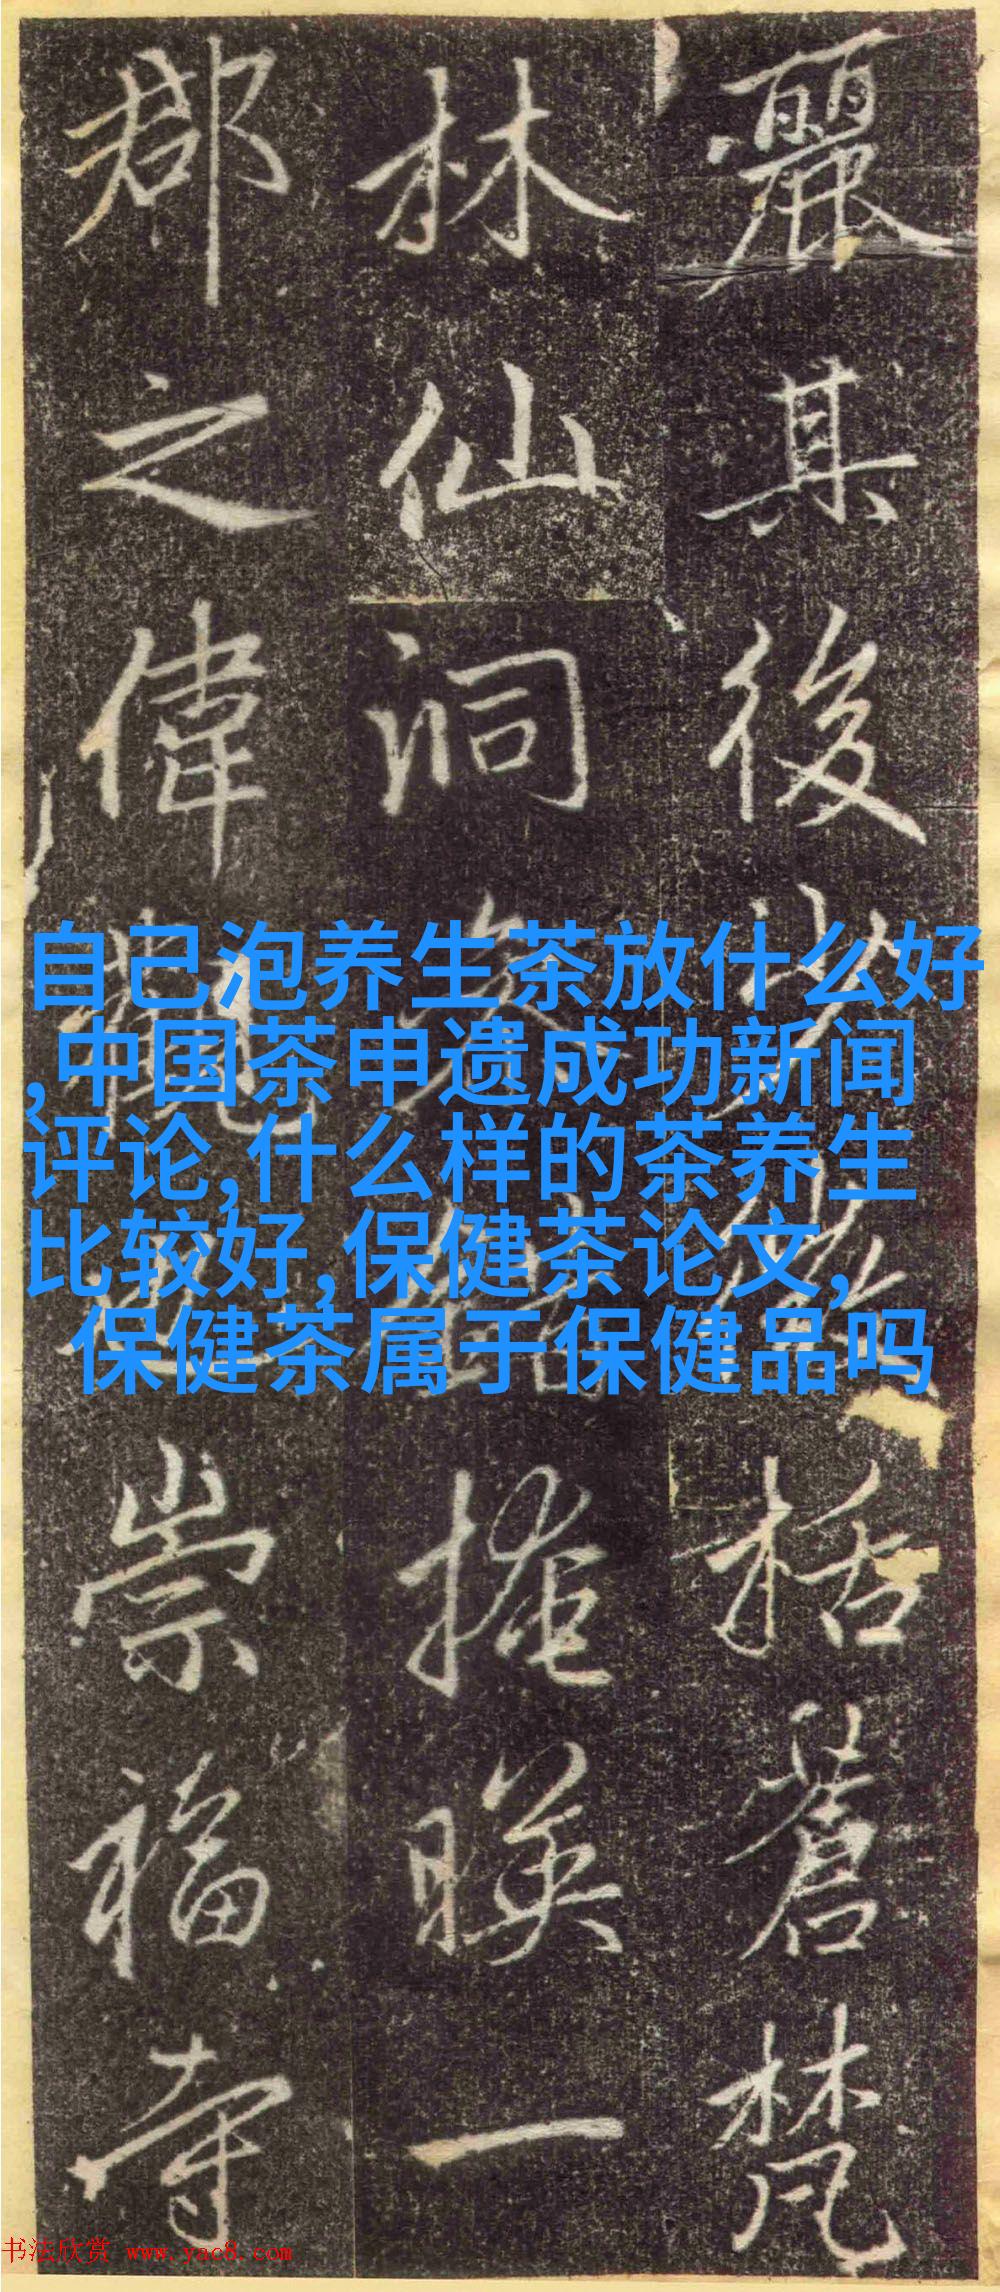 麗其後少
括蒼梵
林仙洞
掩暎一
郡之偉觀
崇福寺
自己泡养生茶放什么好
,中国茶申遗成功新闻
评论,什么样的茶养生
比较好,保健茶论文,
保健茶属于保健品吗
书法欣赏 www.yac8.com